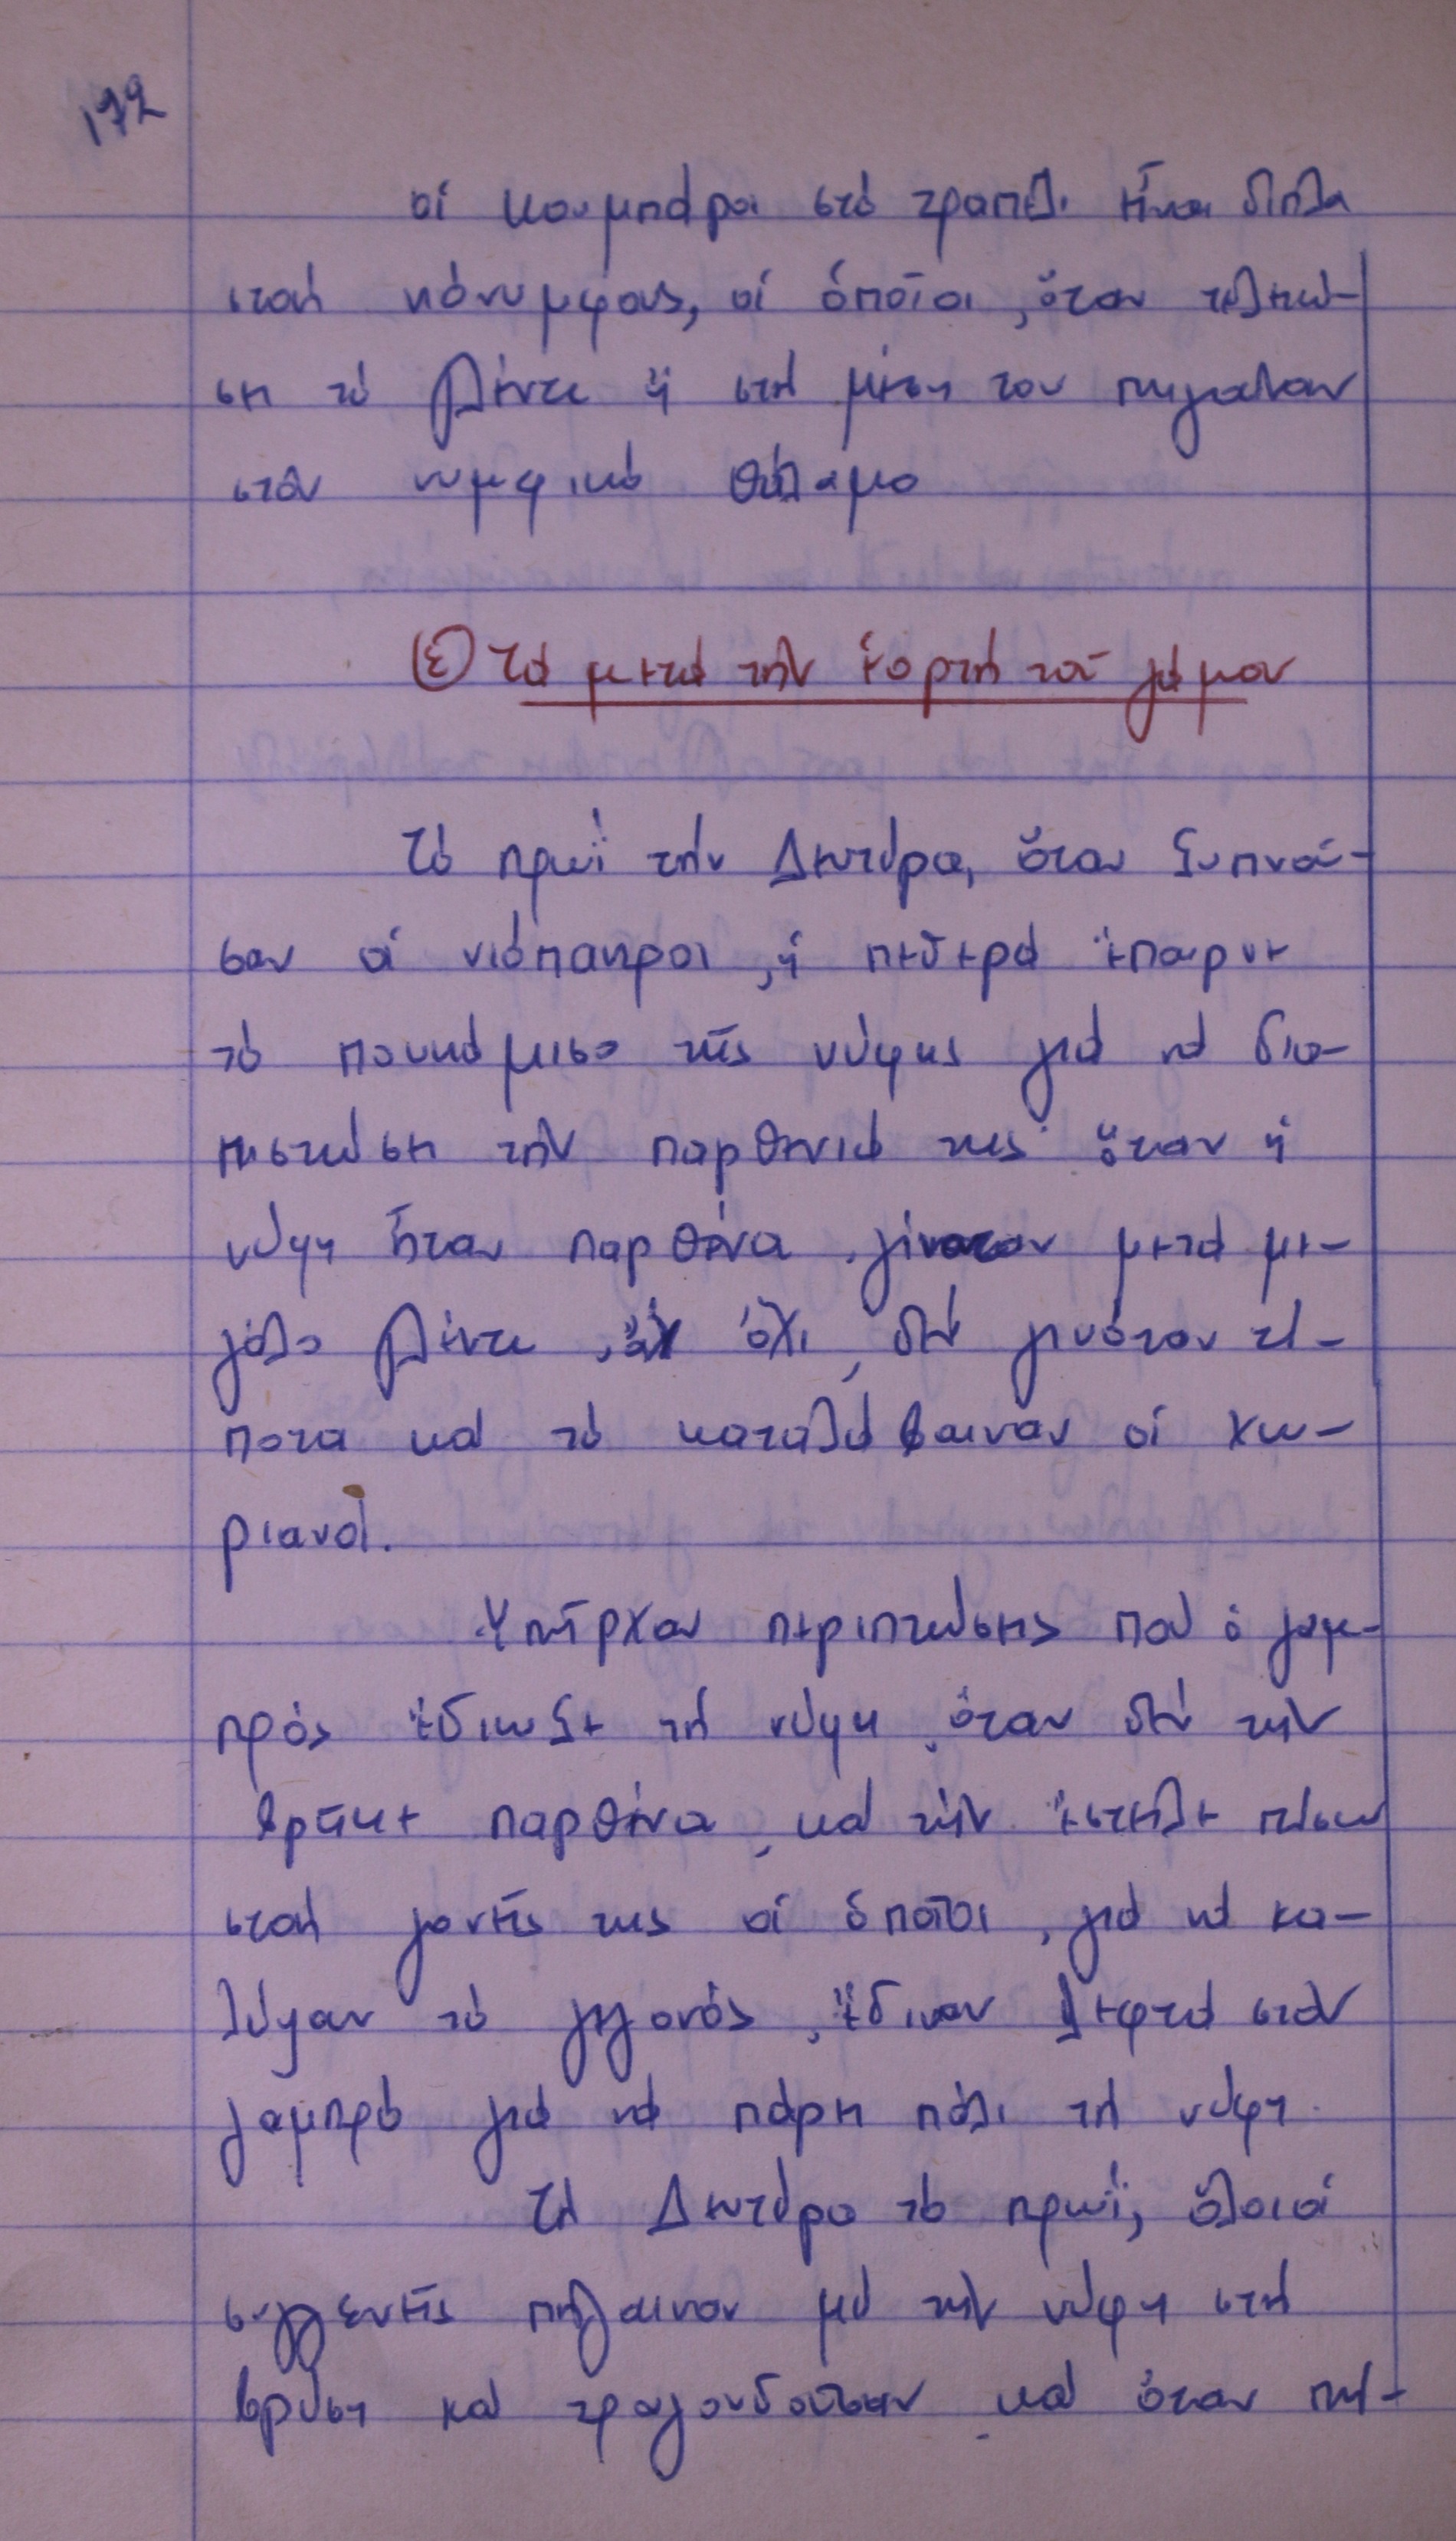 172
οἱ κουμπάροι στό τραπέζι εἶναι δίπλα
στούς νεόνυμφους, οἱ ὁποῖοι, ὅταν τελειώ-
σει τό γλέντι ἤ στή μέση του πηγαίνουν
στόν νυμφικό θάλαμο
ε) Τά μετά τήν ἑορτή τοῦ γάμου
Τό πρωΐ τήν Δευτέρα, ὅταν ξυπνού-
σαν οἱ νιόπαντροι, ἡ πεθερά ἔπαιρνε
τό πουκάμισο τῆς νύφης γιά νά δια-
πιστώσει τήν παρθενιά της· ὅταν ἡ
νύφη ἦταν παρθένα, γίνοταν μετά με-
γάλο γλέντι, ἄν ὄχι, δέν γινόταν τί-
ποτα καί τό καταλάβαιναν οἱ χω-
ριανοί.
Ὑπῆρχαν περιπτώσεις πού ὁ γαμ-
πρός ἔδιωξε τή νύφη, ὅταν δέν τήν
βρῆκε παρθένα, καί τήν ἔστειλε πίσω
στούς γονεῖς της οἱ ὁποῖοι, γιά νά κα-
λύψουν τό γεγονός, ἔδιναν λεφτά στόν
γαμπρό γιά νά πάρει πάλι τή νύφη.
Τή Δευτέρα τό πρωΐ, ὅλοι οἱ
συγγενεῖς πήγαιναν μέ τήν νύφη στή
βρύση καί τραγουδοῦσαν καί ὅταν πή-